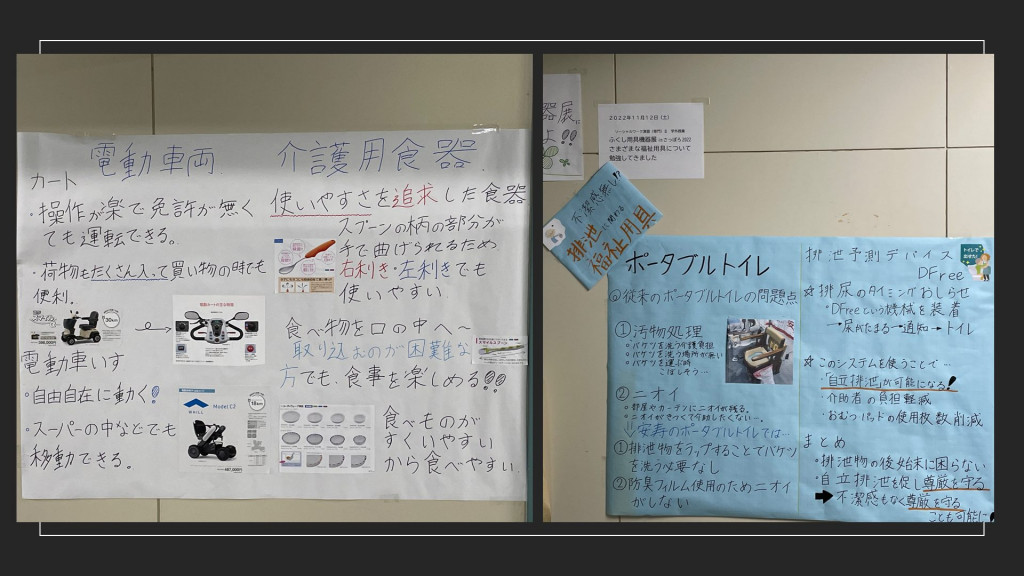 電動車両
カート
・操作が楽で免許が無く
ても運転できる。
・荷物もたくさん入って買い物の時でも
便利.
電動車いす
・自由自在に動く!
・スーパーの中などでも
移動できる。
30km
WHILL
Model C2
18km
介護用食器.
使いやすさを追求した食器
スプーンの柄の部分が
手で曲げられるため
右利き・左利きでも
使いやすい.
食べ物を口の中へ〜
取り込むのが困難な
方でも、食事を楽しめる!!
食べものが
すくいやすい
から食べやすい.
器展
よ!!
2022年11月12日(土)
ふくし用具機器展 inさっぽろ2022
さまざまな福祉用具について
勉強してきました
不潔感無し!?
排泄に関わる
福祉用具
ポータブルトイレ
◎従来のポータブルトイレの問題点
①汚物処理
○バケツを洗う介護負担
○バケツを洗う場所が無い
○バケツを運ぶ時
こぼしそう…
②ニオイ
○部屋やカーテンにニオイが残る。
↓安寿のポータブルトイレでは…
①排泄物をラップすることでバケツ
を洗う必要なし
②防臭フィルム使用のためニオイ
がしない
排泄予測デバイス
DFree
トイレで
出せた!
☆排尿のタイミングおしらせ
・DFreeという機械を装着
→尿がたまる→通知→トイレ
☆このシステムを使うことで…
「自立排泄」が可能になる!
・介助者の負担軽減
・おむつ、パッドの使用枚数削減
まとめ
・排泄物の後始末に困らない
・自立排泄を促し尊厳を守る
➡不潔感もなく尊厳を守る
ことも可能に!